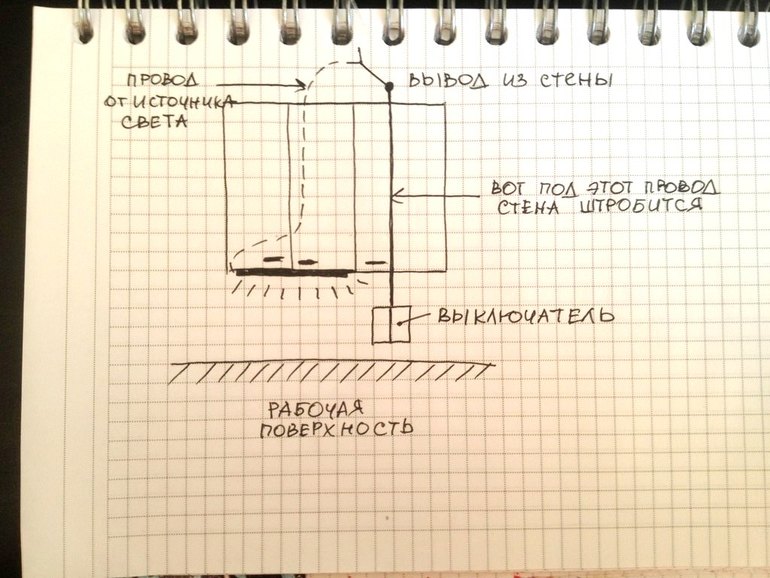 ПРОВОД
ОТ ИСТОЧНИКА
СВЕТА
ВЫВОД ИЗ СТЕНЫ
ВОТ ПОД ЭТОТ ПРОВОД
СТЕНА ШТРОБИТСЯ
ВЫКЛЮЧАТЕЛЬ
РАБОЧАЯ
ПОВЕРХНОСТЬ